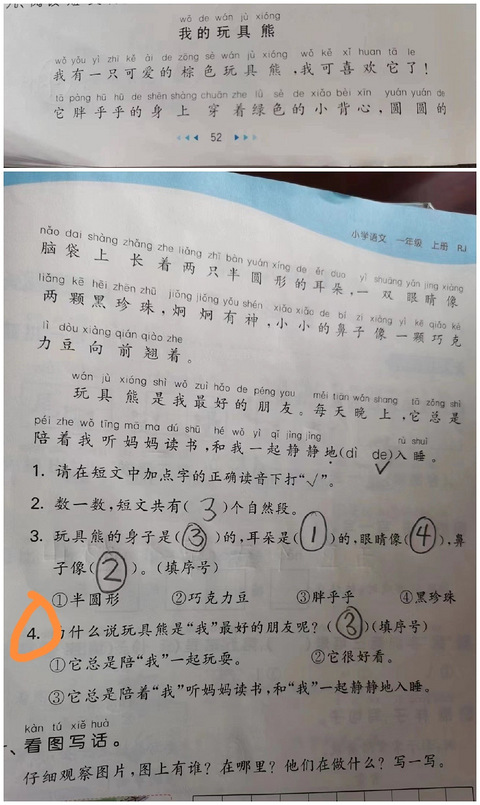 wǒ de wán jù xióng
我的玩具熊
wǒ yǒu yì zhī kě ài de zōng sè wán jù xióng wǒ kě xǐ huan tā le
我有一只可爱的棕色玩具熊,我可喜欢它了!
tā pàng hū hū de shēn shang chuān zhe lǜ sè de xiǎo bèi xīn yuán yuán de
它胖乎乎的身上穿着绿色的小背心,圆圆的
52
小学语文 一年级 上册 RJ
nǎo dai shàng zhǎng zhe liǎng zhī bàn yuán xíng de ěr duo yì shuāng yǎn jing xiàng
脑袋上长着两只半圆形的耳朵,一双眼睛像
liǎng kē hēi zhēn zhū jiǒng jiǒng yǒu shén xiǎo xiǎo de bí zi xiàng yì kē qiǎo kè
两颗黑珍珠,炯炯有神,小小的鼻子像一颗巧克
lì dòu xiàng qián qiào zhe
力豆向前翘着。
wán jù xióng shì wǒ zuì hǎo de péng you měi tiān wǎn shang tā zǒng shì
玩具熊是我最好的朋友。每天晚上,它总是
péi zhe wǒ tīng mā ma dú shū hé wǒ yì qǐ jìng jìng rù shuì
陪着我听妈妈读书,和我一起静静地(dì de)入睡。
1. 请在短文中加点字的正确读音下打“√”。
2. 数一数,短文共有(3)个自然段。
3. 玩具熊的身子是(③)的,耳朵是(①)的,眼睛像(④),鼻
子像(②)。(填序号)
①半圆形 ②巧克力豆 ③胖乎乎 ④黑珍珠
4. 为什么说玩具熊是“我”最好的朋友呢?(③)(填序号)
①它总是陪“我”一起玩耍。 ②它很好看。
③它总是陪着“我”听妈妈读书,和“我”一起静静地入睡。
kàn tú xiě huà
、看图写话。
仔细观察图片,图上有谁?在哪里?他们在做什么?写一写。